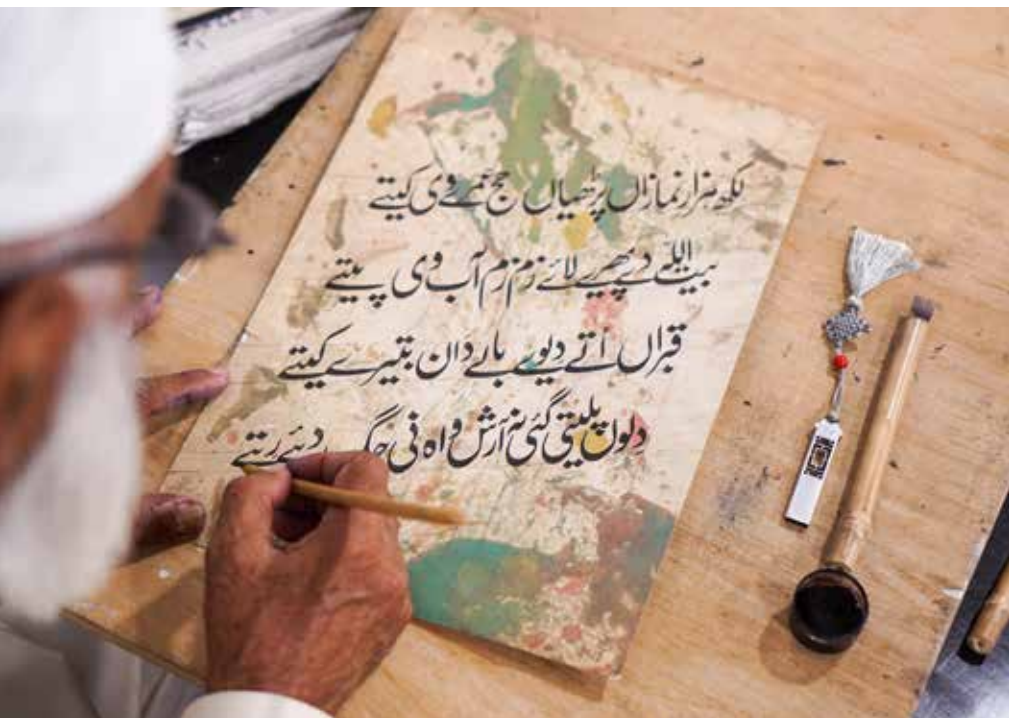 لکھ ہزار نمازاں پڑھیاں حج عمرے وی کیتے
بیت اللہ دے پھیرے لائے زم زم آب وی پیتے
قرآں اُتے دیوے بالے دان بتیرے کیتے
دلوں پلیتی گئی نہ آرش واہ نی جگ دئیے ریتے